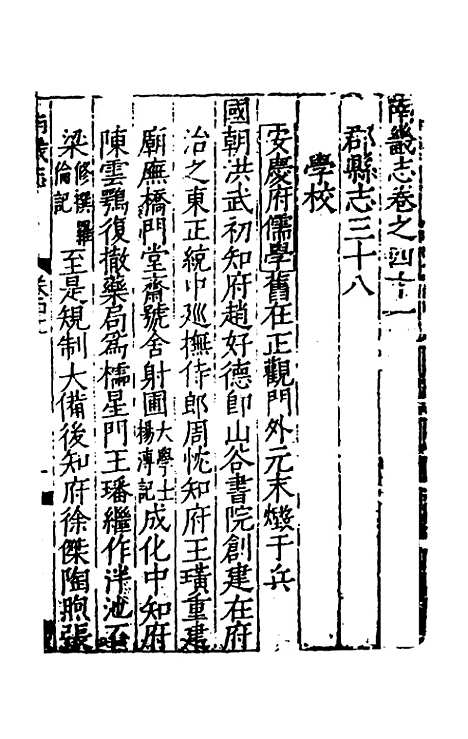 南畿志卷之四十一
郡縣志三十八
學校
安慶府儒學舊在正觀門外元末燬于兵
國朝洪武初知府趙好德卽山谷書院創建在府
治之東正統中廵撫侍郎周忱知府王璜重建
廟廡橋門堂齋號舍射圃大學士楊溥記成化中知府
陳雲鶚復撤藥局爲櫺星門王璠繼作泮池石
梁修撰羅倫記至是規制大備後知府徐傑陶煦張